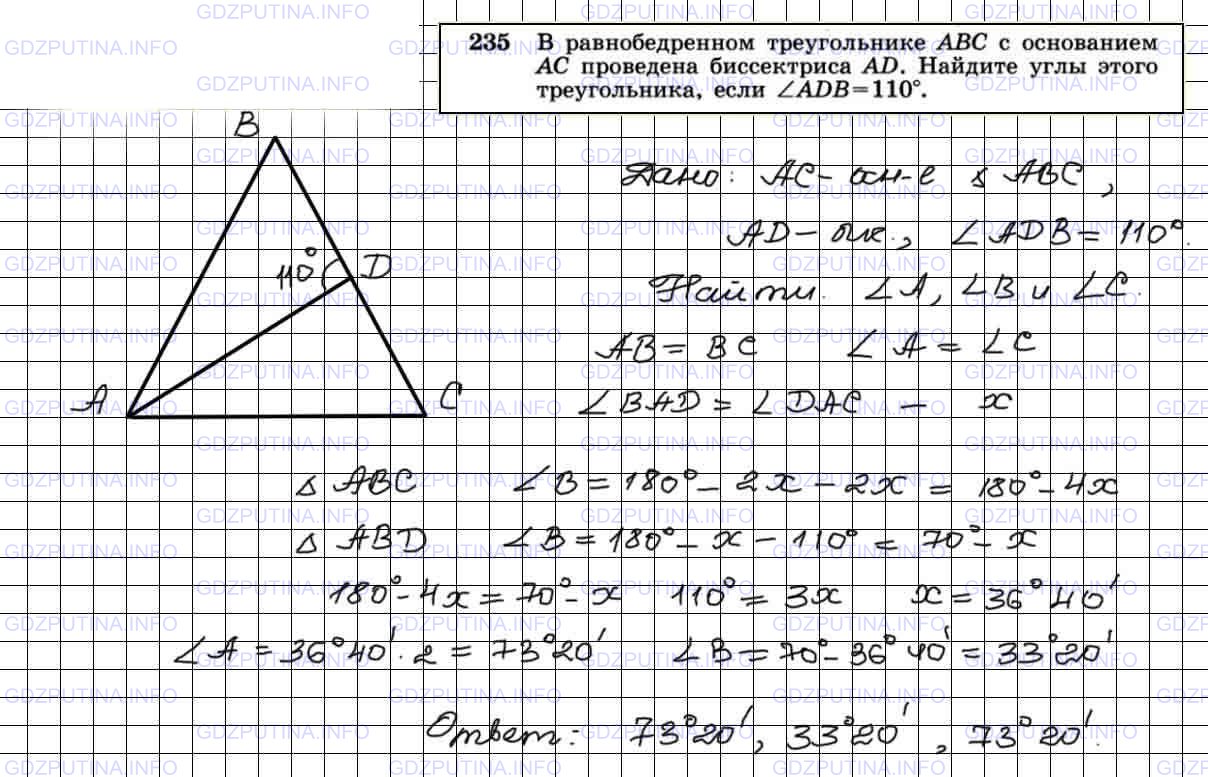 235 В равнобедренном треугольнике ABC с основанием
AC проведена биссектриса AD. Найдите углы этого
треугольника, если ∠ADB=110°.
B
110°
D
A
C
Дано: AC – осн-е Δ ABC,
AD – бис., ∠ADB = 110°.
Найти. ∠A, ∠B и ∠C.
AB = BC ∠A = ∠C
∠BAD = ∠DAC – x
Δ ABC ∠B = 180° – 2x – 2x = 180° – 4x
Δ ABD ∠B = 180° – x – 110° = 70° – x
180° – 4x = 70° – x 110° = 3x x = 36°40'
∠A = 36°40' · 2 = 73°20' ∠B = 70° – 36°40' = 33°20'
Ответ: 73°20', 33°20', 73°20'.
GDZPUTINA.INFO